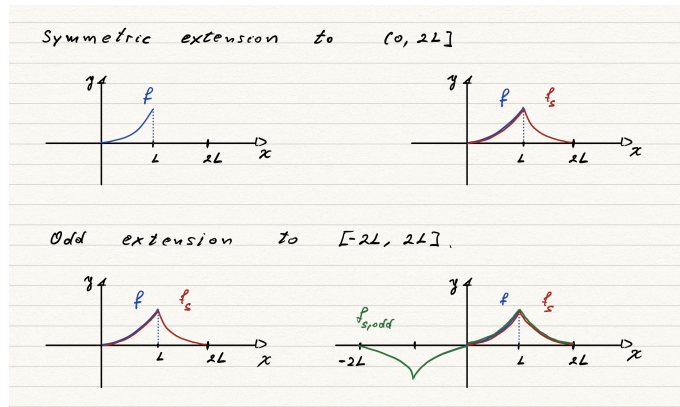 Symmetric extension to (0, 2L]
y f L 2L x
y f f_s L 2L x
Odd extension to [-2L, 2L].
y f f_s L 2L x
f_s,odd -2L y f f_s L 2L x